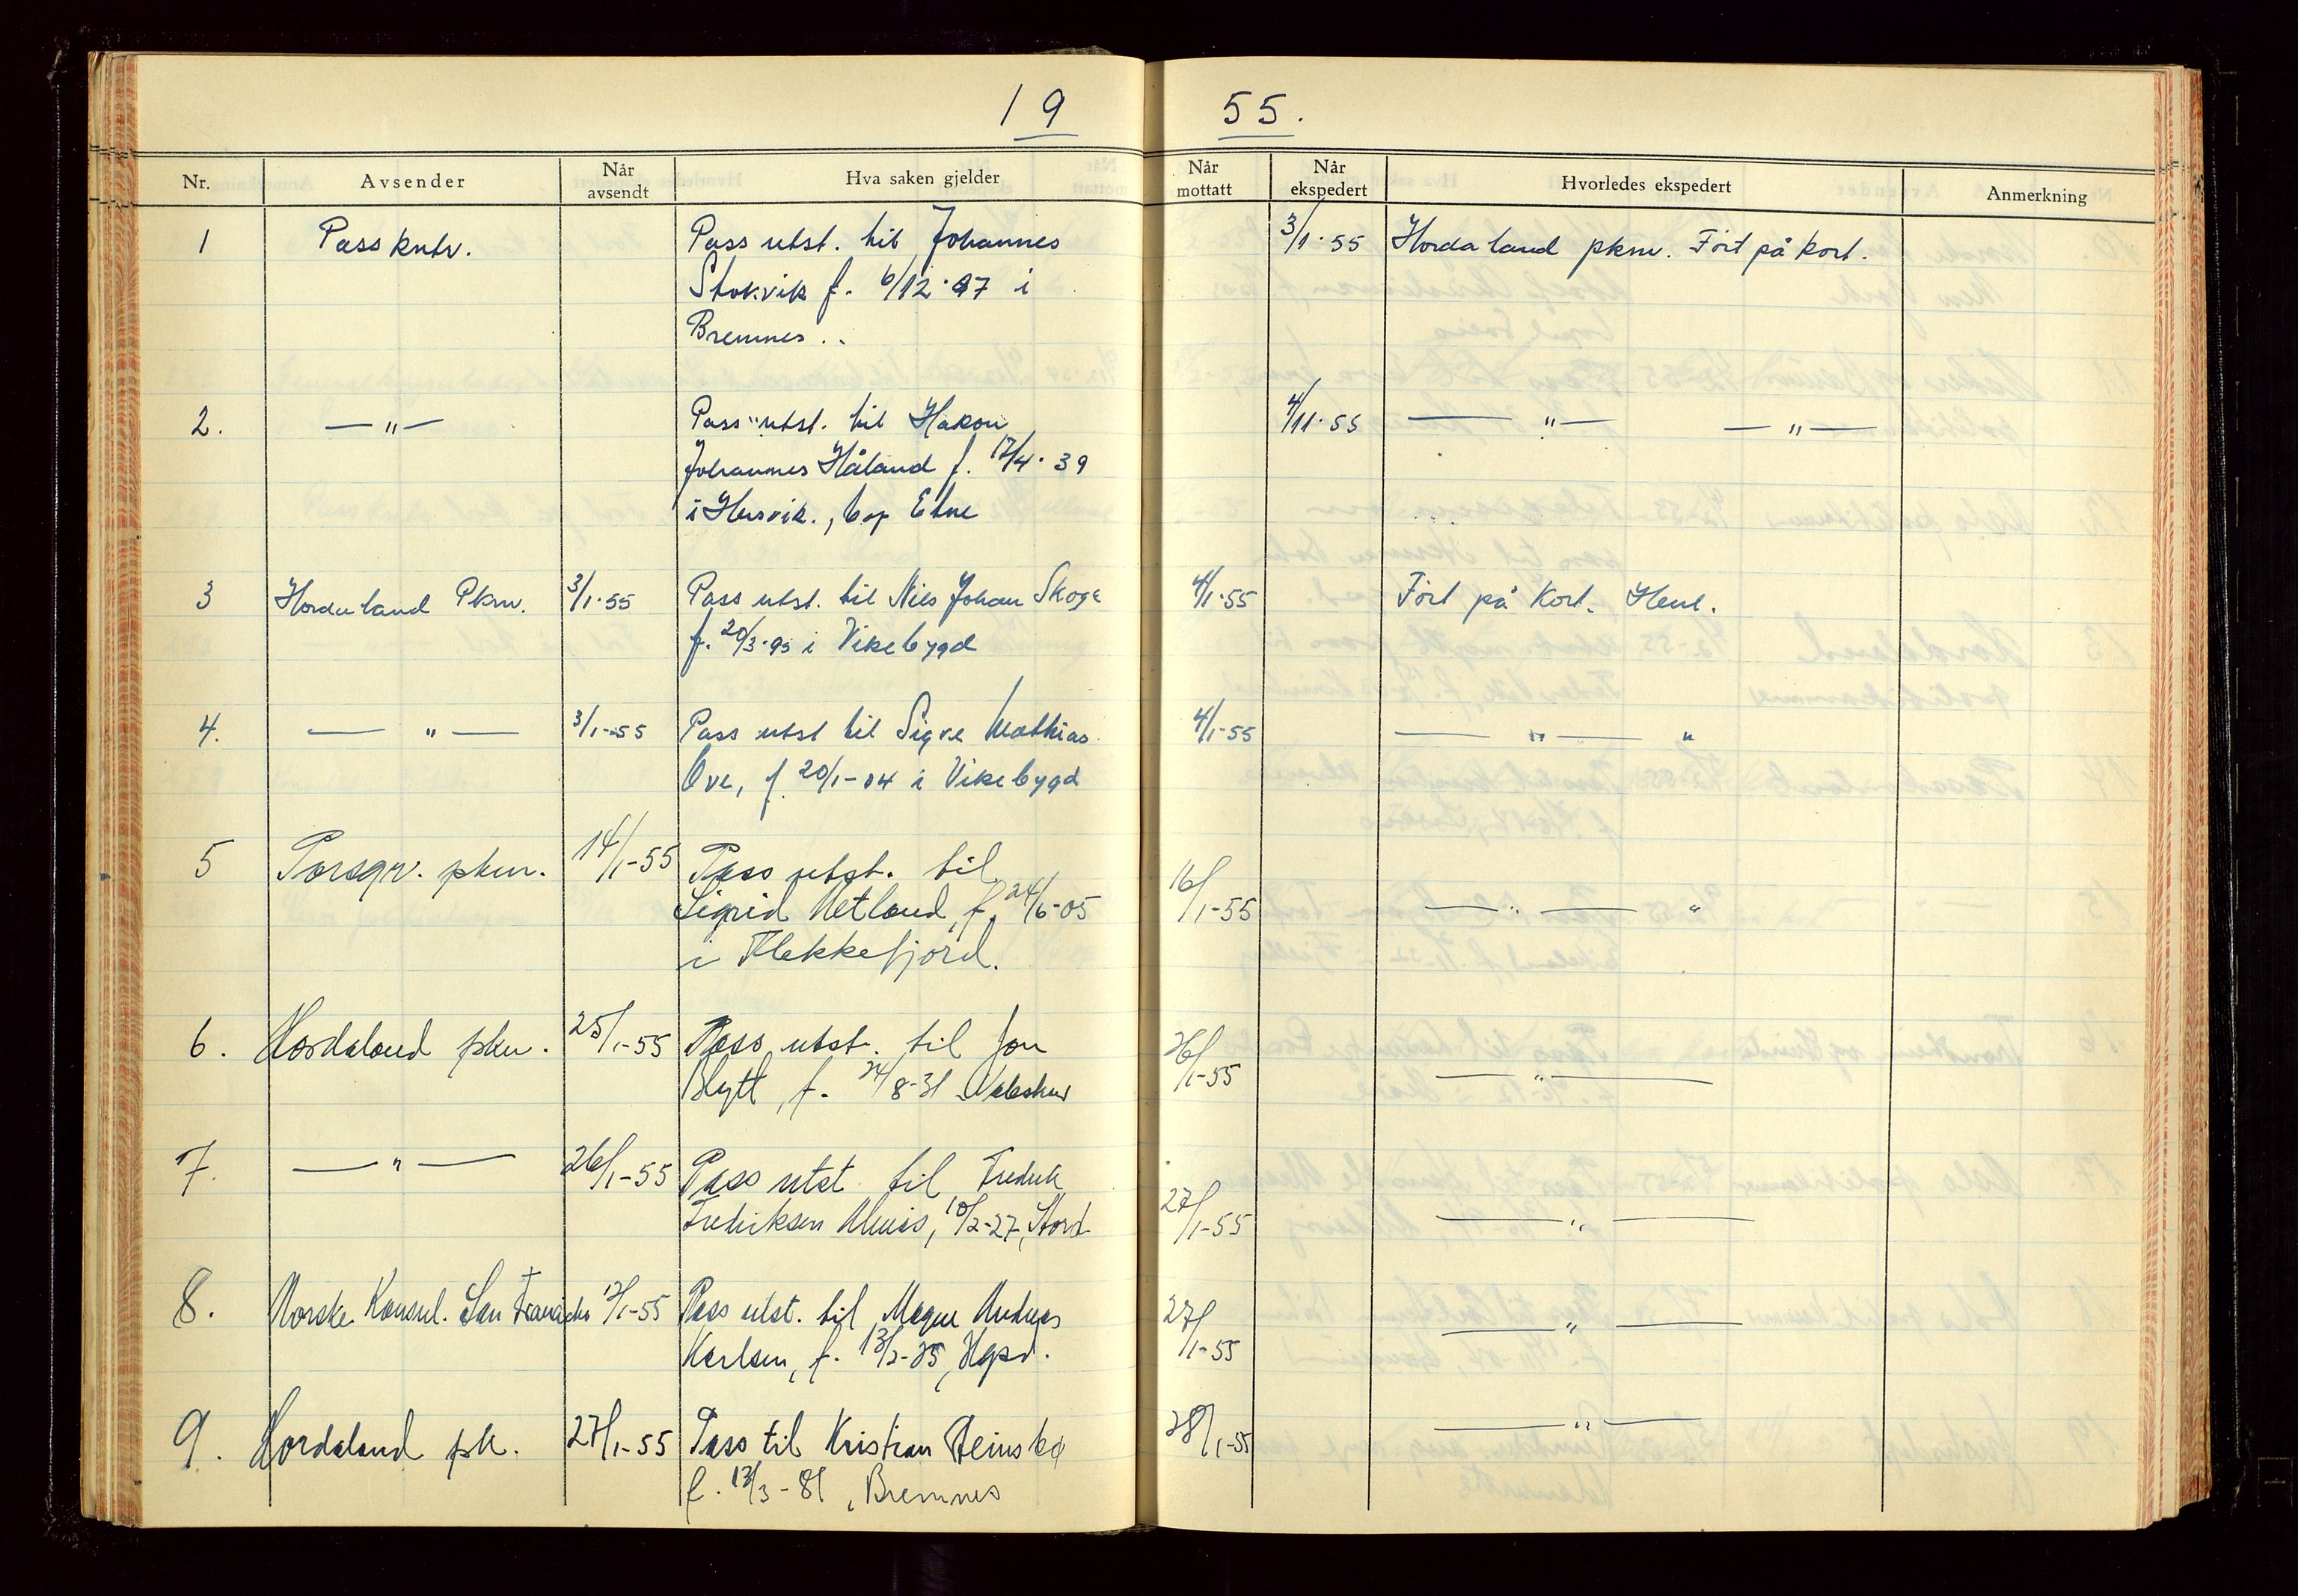 19 55.
Nr. Avsender Når avsendt Hva saken gjelder Når mottatt Når ekspedert Hvorledes ekspedert Anmerkning
1 Passkntr. Pass utst. til Johannes 3/1-55 Hordaland pkm. Ført på kort.
Stokvik f. 6/12-97 i
Bremnes..
2. — " — Pass utst. til Hakon 4/11-55 — " — — " —
Johannes Håland f. 17/4-39
i, bop Etne
3 Hordaland Pkm. 3/1-55 Pass utst. til Nils Johan Skoge 4/1-55 Ført på Kort. Henl.
f. 20/3-95 i Vikebygd
4. — " — 3/1-55 Pass utst til Sigve Mathias 4/1-55 — " — "
Ove, f. 20/1-04 i Vikebygd
5 Porsgr. pkm. 14/1-55 Pass utst. til 16/1-55 — " — "
Sigrid Netland, f. 24/6-05
i Flekkefjord.
6. Hordaland pkm. 25/1-55 Pass utst. til Jon 26/1-55 — " —
Blytt, f. 24/8-31
7. — " — 26/1-55 Pass utst. til Fredrik 27/1-55 — " —
Fredriksen, 10/2-27, Stord
8. Norske Konsul. San Francisko 17/1-55 Pass utst. til Magne Andreas 27/1-55 — " —
Karlsen, f. 13/2-25, Hgsd.
9. Hordaland pk. 27/1-55 Pass til Kristian Steinsbø 28/1-55 — " —
f. 13/3-81, Bremnes